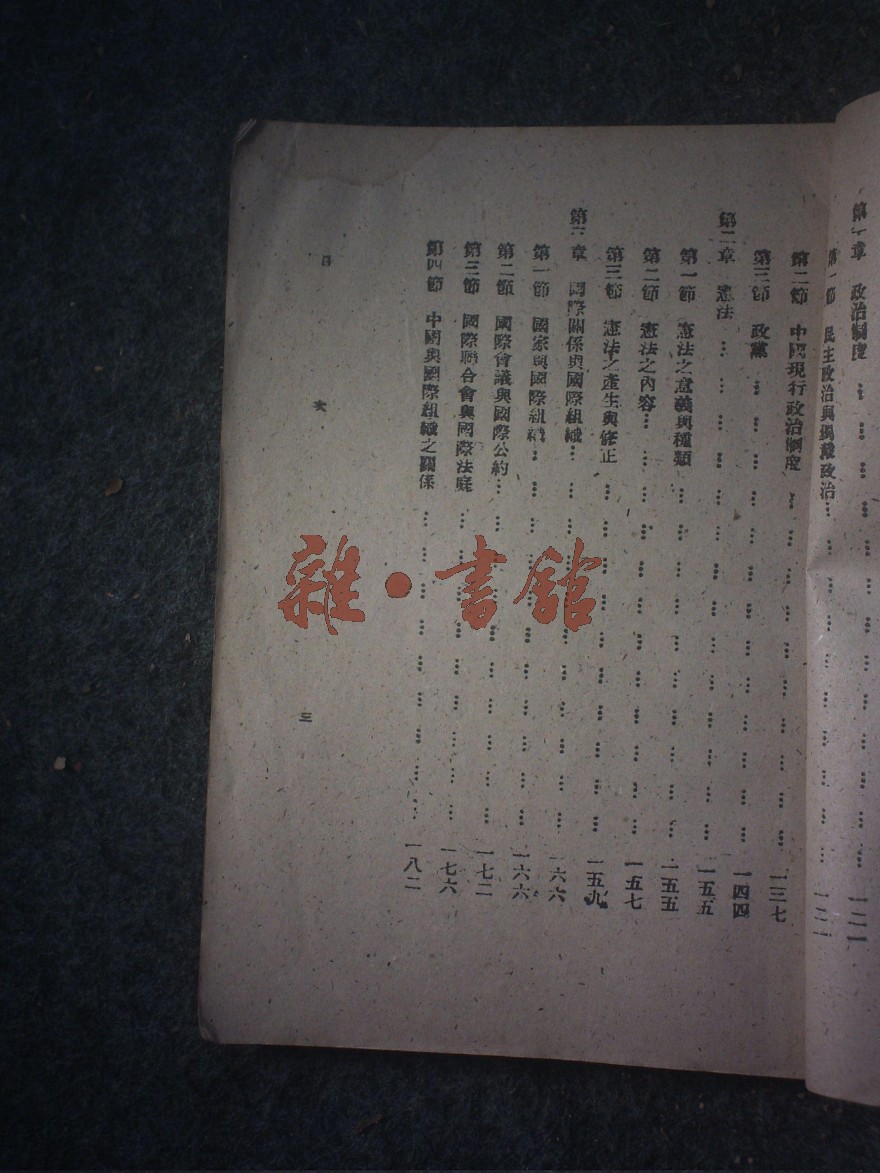 第一章 政治制度 … … … … … … … … … … … 一二一
第一節 民主政治與獨裁政治… … … … … … … … 一二一
第二節 中國現行政治制度 … … … … … … … … … 一三七
第三節 政黨 … … … … … … … … … … … … 一四四
第二章 憲法 … … … … … … … … … … … … 一五五
第一節 憲法之意義與種類 … … … … … … … … … 一五五
第二節 憲法之內容… … … … … … … … … … … 一五七
第三節 憲法之產生與修正 … … … … … … … … … 一五九
第 章 國際關係與國際組織… … … … … … … … … 一六六
第一節 國家與國際組織… … … … … … … … … … 一六六
第二節 國際會議與國際公約… … … … … … … … … 一七二
第三節 國際聯合會與國際法庭 … … … … … … … … 一七六
第四節 中國與國際組織之關係 … … … … … … … … 一八二
目 次 三
雜·書館